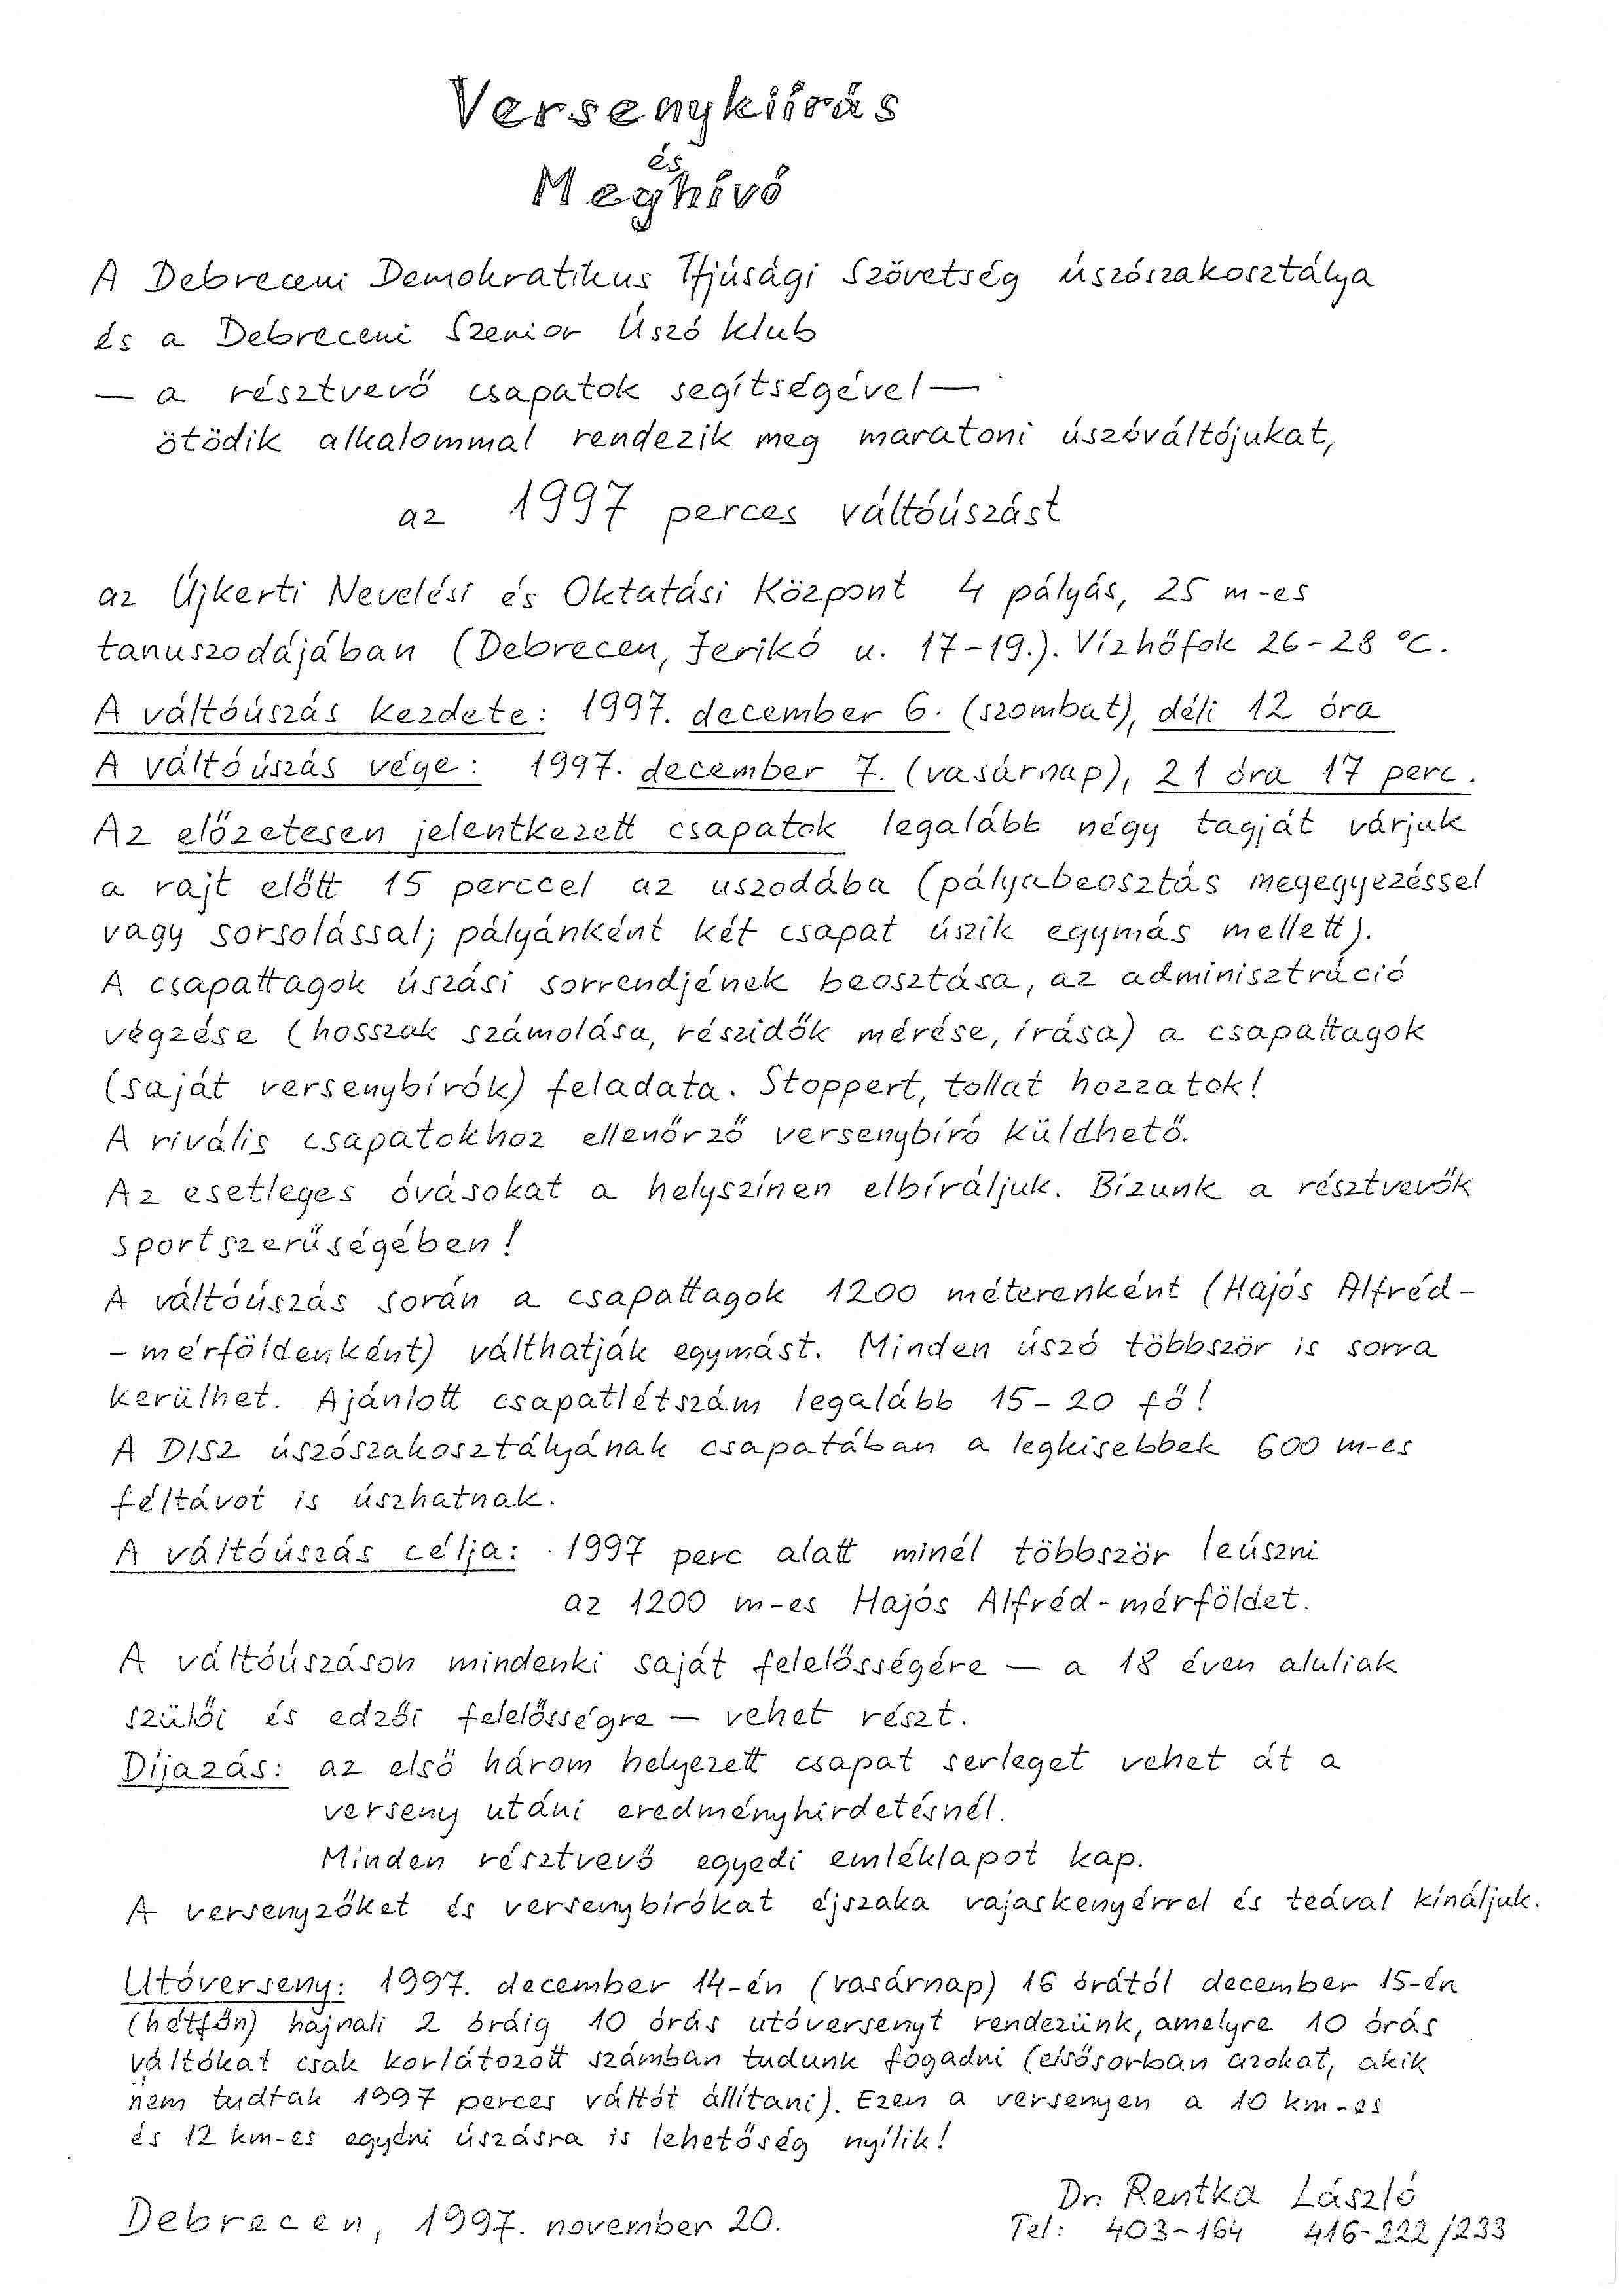 Versenykiírás
és
Meghívó
A Debreceni Demokratikus Ifjúsági Szövetség úszószakosztálya
és a Debreceni Szenior Úszó klub
— a résztvevő csapatok segítségével —
ötödik alkalommal rendezik meg maratoni úszóváltójukat,
az 1997 perces váltóúszást
az Újkerti Nevelési és Oktatási Központ 4 pályás, 25 m-es
tanuszodájában (Debrecen, Jerikó u. 17-19.). Vízhőfok 26-28 °C.
A váltóúszás kezdete: 1997. december 6. (szombat), déli 12 óra
A váltóúszás vége: 1997. december 7. (vasárnap), 21 óra 17 perc.
Az előzetesen jelentkezett csapatok legalább négy tagját várjuk
a rajt előtt 15 perccel az uszodába (pályabeosztás megegyezéssel
vagy sorsolással; pályánként két csapat úszik egymás mellett).
A csapattagok úszási sorrendjének beosztása, az adminisztráció
végzése (hosszak számolása, részidők mérése, írása) a csapattagok
(saját versenybírók) feladata. Stoppert, tollat hozzatok!
A rivális csapatokhoz ellenőrző versenybíró küldhető.
Az esetleges óvásokat a helyszínen elbíráljuk. Bízunk a résztvevők
sportszerűségében!
A váltóúszás során a csapattagok 1200 méterenként (Hajós Alfréd-
-mérföldenként) válthatják egymást. Minden úszó többször is sorra
kerülhet. Ajánlott csapatlétszám legalább 15-20 fő!
A DISZ úszószakosztályának csapatában a legkisebbek 600 m-es
féltávot is úszhatnak.
A váltóúszás célja: 1997 perc alatt minél többször leúszni
az 1200 m-es Hajós Alfréd-mérföldet.
A váltóúszáson mindenki saját felelősségére — a 18 éven aluliak
szülői és edzői felelősségre — vehet részt.
Díjazás: az első három helyezett csapat serleget vehet át a
verseny utáni eredményhirdetésnél.
Minden résztvevő egyedi emléklapot kap.
A versenyzőket és versenybírókat éjszaka vajaskenyérrel és teával kínáljuk.
Utóverseny: 1997. december 14-én (vasárnap) 16 órától december 15-én
(hétfőn) hajnali 2 óráig 10 órás utóversenyt rendezünk, amelyre 10 órás
váltókat csak korlátozott számban tudunk fogadni (elsősorban azokat, akik
nem tudtak 1997 perces váltót állítani). Ezen a versenyen a 10 km-es
és 12 km-es egyéni úszásra is lehetőség nyílik!
Dr. Rentka László
Debrecen, 1997. november 20.
Tel: 403-164 416-222/233